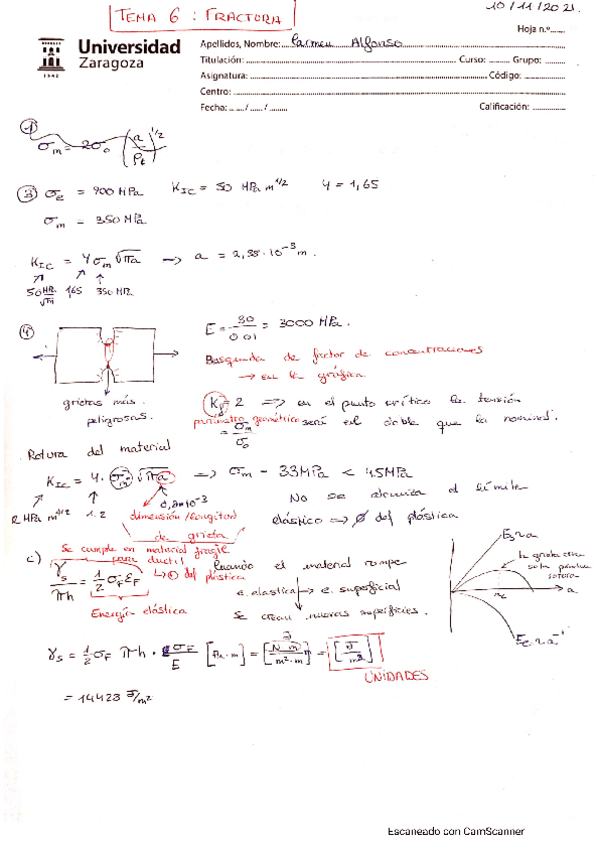 TEMA 6 : FRACTURA
10/11/2021.
Hoja n.º......
Universidad
Zaragoza
1542
Apellidos, Nombre: Carmen Alfonso
Titulación: Curso: Grupo:
Asignatura: Código:
Centro:
Fecha: ....../....../...... Calificación:
① σm = 2σ0 (a/ρt)^1/2
③ σe = 900 MPa KIC = 50 MPa m^1/2 Y = 1,65
σm = 350 MPa
KIC = Yσm√πa → a = 2,38·10^-3 m.
50 MPa √m 1,65 350 MPa
④ E = 30/0.01 = 3000 MPa.
Busqueda de factor de concentraciones
→ en la gráfica
grietas más
peligrosas.
Kt = 2 => en el punto crítico la tensión
parámetro geométrico será el doble que la nominal.
= σm/σ0
Rotura del material
KIC = Y·σm√πa => σm = 33MPa < 45MPa
2 MPa m^1/2 1.2
dimensión/longitud
de grieta
No se alcanza el límite
elástico => ∅ def plástica
Se cumple en material fragil
para ductil
→ def plástica
c) γs/πh = 1/2 σF εF
Energía elástica
Cuando el material rompe
e. elastica → e. superficial
Se crean nuevas superficies.
Es ~ a
la grieta crece
sola
rotura
a
γs = 1/2 σF πh · σF/E [Pa·m] = [N m/m²·m] = [J/m²]
UNIDADES
= 14423 J/m²
Escaneado con CamScanner